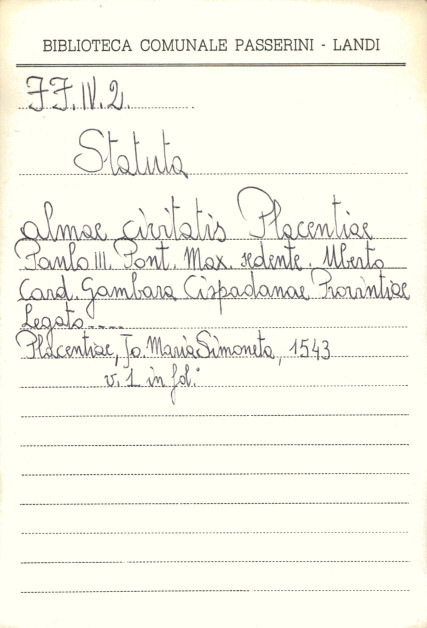 BIBLIOTECA COMUNALE PASSERINI - LANDI
FF. IV. 2.
Statuta
almae civitatis Placentiae
Paulo III. Pont. Max. sedente. Uberto
Card. Gambara Cispadanae Provintiae
Legato ----
Placentiae, Jo. Maria Simoneta, 1543
v. 1 in fol.°